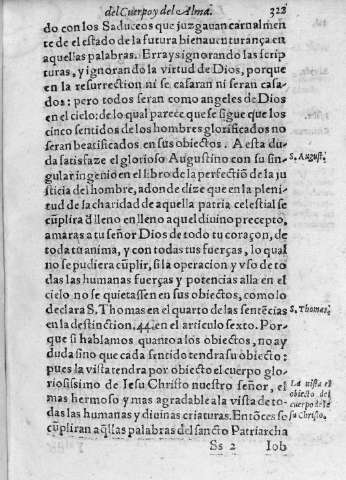 del Cuerpo y del Alma. 322
do con los Saduceos que juzgauan carnalmen
te de el estado de la futura bienauenturança en
aquellas palabras. Errays ignorando las scrip
turas, y ignorando la virtud de Dios, porque
en la resurrestion ni se casaran ni seran casa-
dos: pero todos seran como angeles de Dios
en el cielo: de lo qual parece que se sigue que los
cinco sentidos de los hombres glorificados no
seran beatificados en sus obiectos. A esta du
da satisfaze el glorioso Augustino con su sin-
S. August.
gular ingenio en el libro de la perfectiõ de la ju
sticia del hombre, adonde dize que en la pleni
tud de la charidad de aquella patria celestial se
cũplira d̃ lleno en lleno aquel diuino precepto,
amaras a tu señor Dios de todo tu coraçon, de
toda tu anima, y con todas tus fuerças, lo qual
no se pudiera cũplir, si la operacion y vso de to
das las humanas fuerças y potencias alla en el
cielo no se quietassen en sus obiectos, como lo
declara S. Thomas en el quarto de las sentẽcias
S. Thomas.
en la destinction. 44. en el articulo sexto. Por-
que si hablamos quanto a los obiectos, no ay
duda sino que cada sentido tendra su obiecto:
pues la vista tendra por obiecto el cuerpo glo-
riosissimo de Iesu Christo nuestro señor, el
La vista el
mas hermoso y mas agradable a la vista de to-
obiecto del
cuerpo de Ie
das las humanas y diuinas criaturas. Entõces se
su Christo.
cũpliran aq̃llas palabras del sancto Patriarcha
Ss 2 Iob